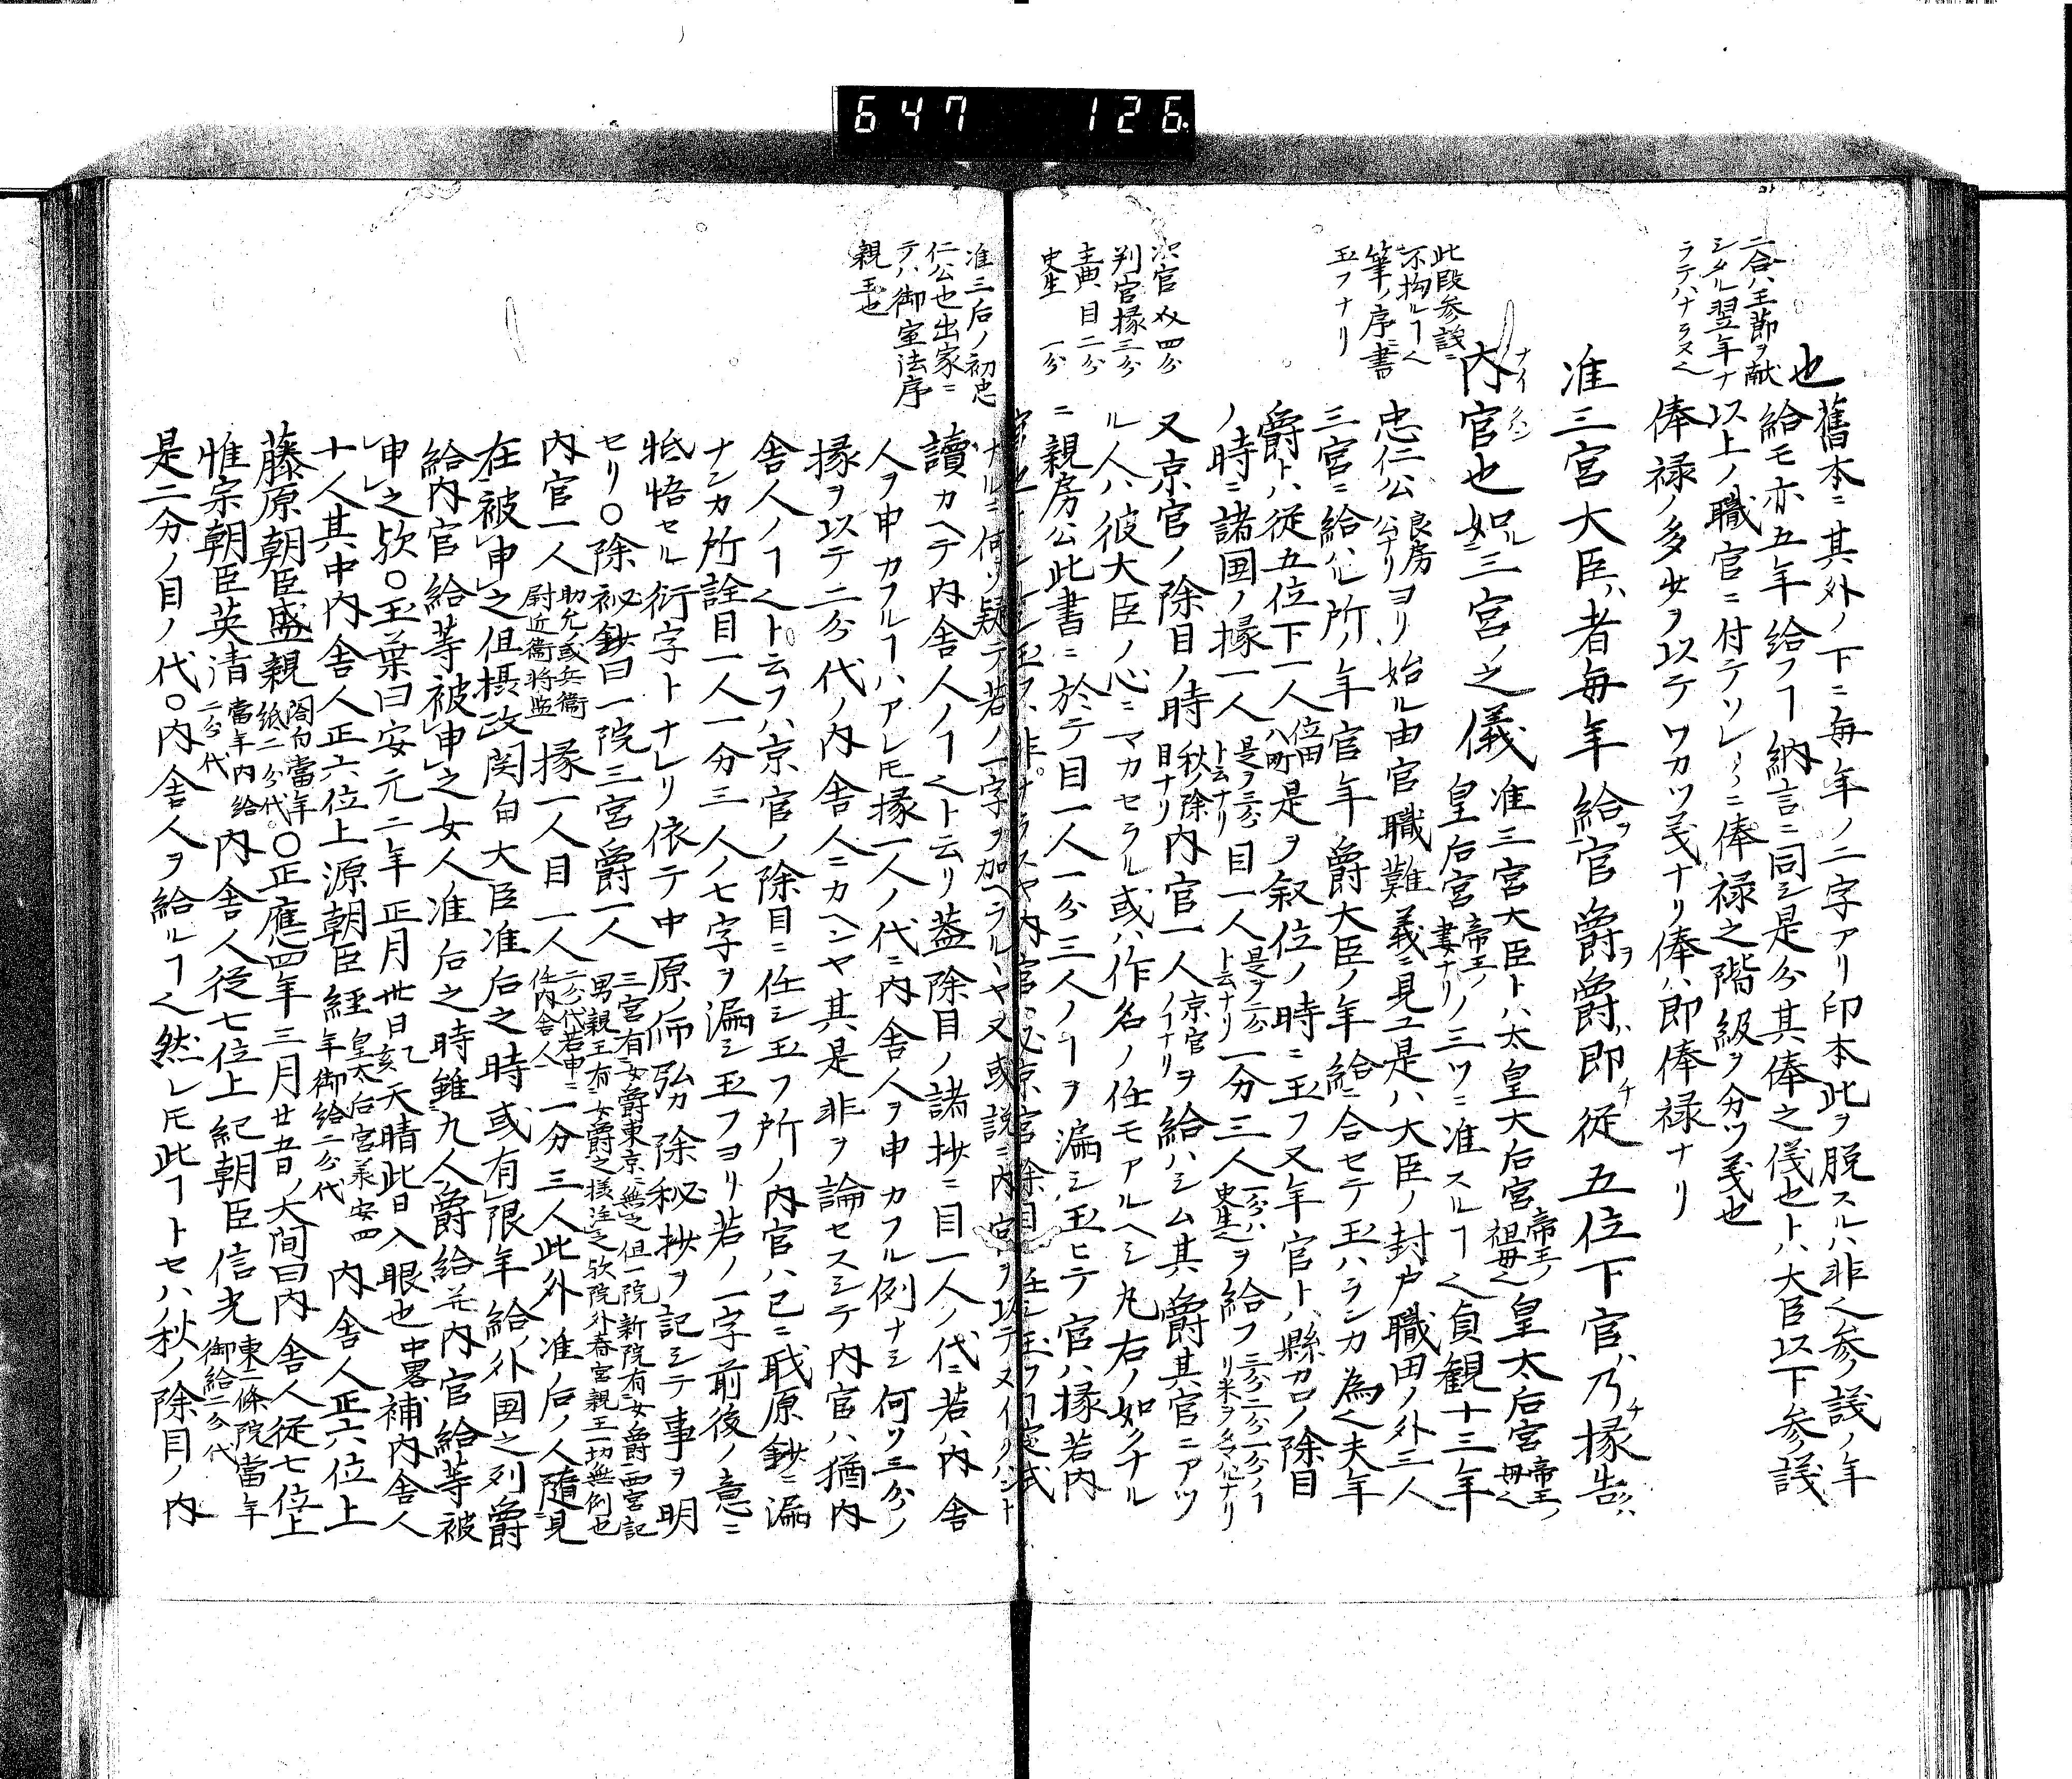 647 126
二合ハ五節ヲ献
シタル翌年ナ
ラテハナラスヘ
也
舊本ニ其外ノ下ニ毎年ノ二字アリ印本此ヲ脱スルハ非也参議ノ年
給モ亦五年給フヿ納言ニ同シ是分其俸之儀也トハ大臣以下参議
以上ノ職官ニ付テソレ〳〵ニ俸禄之階級ヲ分ツ義也
俸禄ノ多少ヲ以テワカツ義ナリ俸ハ即俸禄ナリ
准三宮大臣ハ者毎年給官爵爵ハ即チ従五位下官ハ乃チ掾告
此段参議ニ
不拘ルヿ也
筆ノ序ニ書
玉フナリ
内官也如三宮ノ之儀
准三宮大臣トハ太皇大后宮帝王ノ祖母也皇太后宮帝王ノ母也
皇后宮帝王ノ妻ナリノ三ツニ准スルヿ也貞観十三年
忠仁公良房公ナリヨリ始ル由官職難義ニ見ユ是ハ大臣ノ封戸職田ノ外三人
三宮ニ給ハル所ノ年官年爵大臣ノ年給ニ合セテ玉ハランカ為也夫年
爵トハ従五位下一人位田八町是ヲ叙位ノ時ニ玉フ又年官トハ縣召ノ除目
ノ時ニ諸国ノ掾一人是ヲ三分ト云ナリ目一人是ヲ二分ト云ナリ一分三人一分ハ史生也ヲ給フ三分二分一分ノヿリ米ヲタマハルナリ
次官 介 四分
判官 掾 三分
主典 目 二分
史生 一分
又京官ノ除目ノ時秋ノ除目ナリ内官一人京官ノヿナリヲ給ハシム其爵其官ニアツ
ル人ハ彼大臣ノ心ニマカセラル或ハ作名ノ任モアルヘシ凡右ノ如クナル
ニ親房公此書ニ於テ目一人一分三人ノヿヲ漏シ玉ヒテ官ハ掾若内
准三后ノ初忠
仁公也出家ニ
テハ御室法序
親王也
ナルニ何ソ疑テ若ノ一字ヲ加ヘラルヽヤ又或説ニ内官ヲ以テ
讀カヘテ内舎人ノヿ也ト云リ蓋除目ノ諸抄ニ目一人ノ代ニ若ハ内舎
人ヲ申カフルヿハアレモ掾一人ノ代ニ内舎人ヲ申カフル例ナシ何ソ三分ノ
掾ヲ以テ二分代ノ内舎人ニカヘンヤ其是非ヲ論セスシテ内官ハ猶内
舎人ノヿ也ト云フハ京官ノ除目ニ任シ玉フ所ノ内官ハ已ニ職原鈔ニ漏
ナシカ所詮目一人一分三人ノ七字ヲ漏シ玉フヨリ若ノ一字前後ノ意ニ
牴牾セル衍字トナレリ依テ中原ノ師弘カ除秘抄ヲ記シテ事ヲ明
セリ〇除秘鈔曰一院三宮爵一人三宮有女爵東京ニ無之但一院新院有女爵西宮記男親王有女爵之様注之欤院外春宮親王一切無例也
内官一人助允或兵衞尉近衞将監掾一人目一人二分代若申ニ任内舎人一分三人此外准ノ后ノ人隨見
在被申之但摂政関白大臣准后之時或有限年給ノ外国之列爵
給内官給等被申之女人准后之時雖九人爵給並内官給等被
申之欤〇玉葉曰安元二年正月卅日乙亥天晴此日入眼也中畧補内舎人
十人其中内舎人正六位上源朝臣経年皇太后宮義安四御給二分代内舎人正六位上
藤原朝臣盛親閤向當年給二分代〇正應四年三月廿五日ノ大間曰内舎人従七位上
惟宗朝臣英清當年内給二分代内舎人従七位上紀朝臣信光東二條院當年御給二分代
是二分ノ目ノ代〇内舎人ヲ給ルヿ也然レモ此ヿトセハ秋ノ除目ノ内